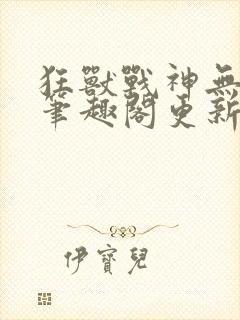 狂獸戰神無
筆趣閣更新
伊寶兒